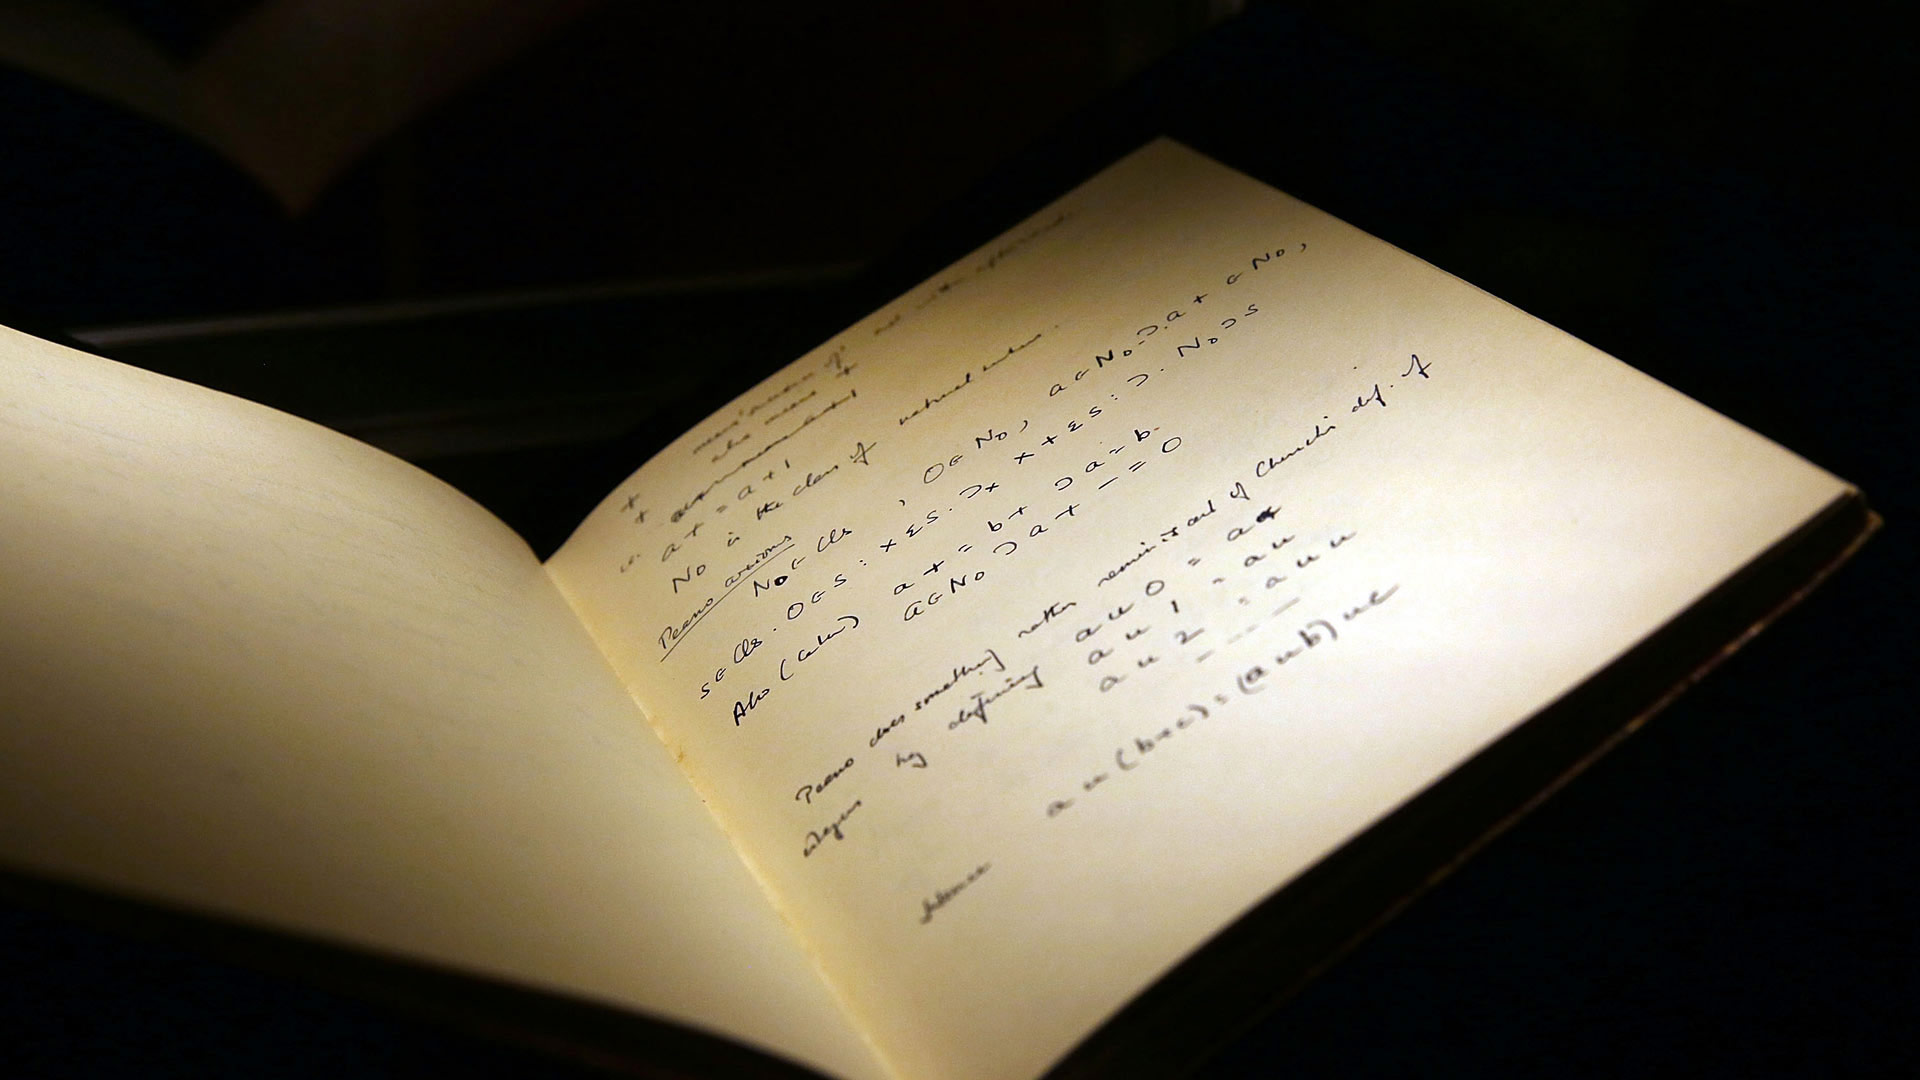 +
+
a+ = a+1
No is the class of natural numbers.
Peano axioms
No ε Cls , 0 ε No , a ε No . ⊃ . a+ ε No ,
s ε Cls . 0 ε s : x ε s . ⊃x x + ε s : ⊃ . No ⊃ s
Also (later) a+ = b+ ⊃ a = b.
a ε No ⊃ a+ – = 0
Peano does something rather reminiscent of Church's def. of
integers by defining a u 0 = a
a u 1 = a u
a u 2 = a u u
– – –
a u (b+c) = (a u b) u c
Hence